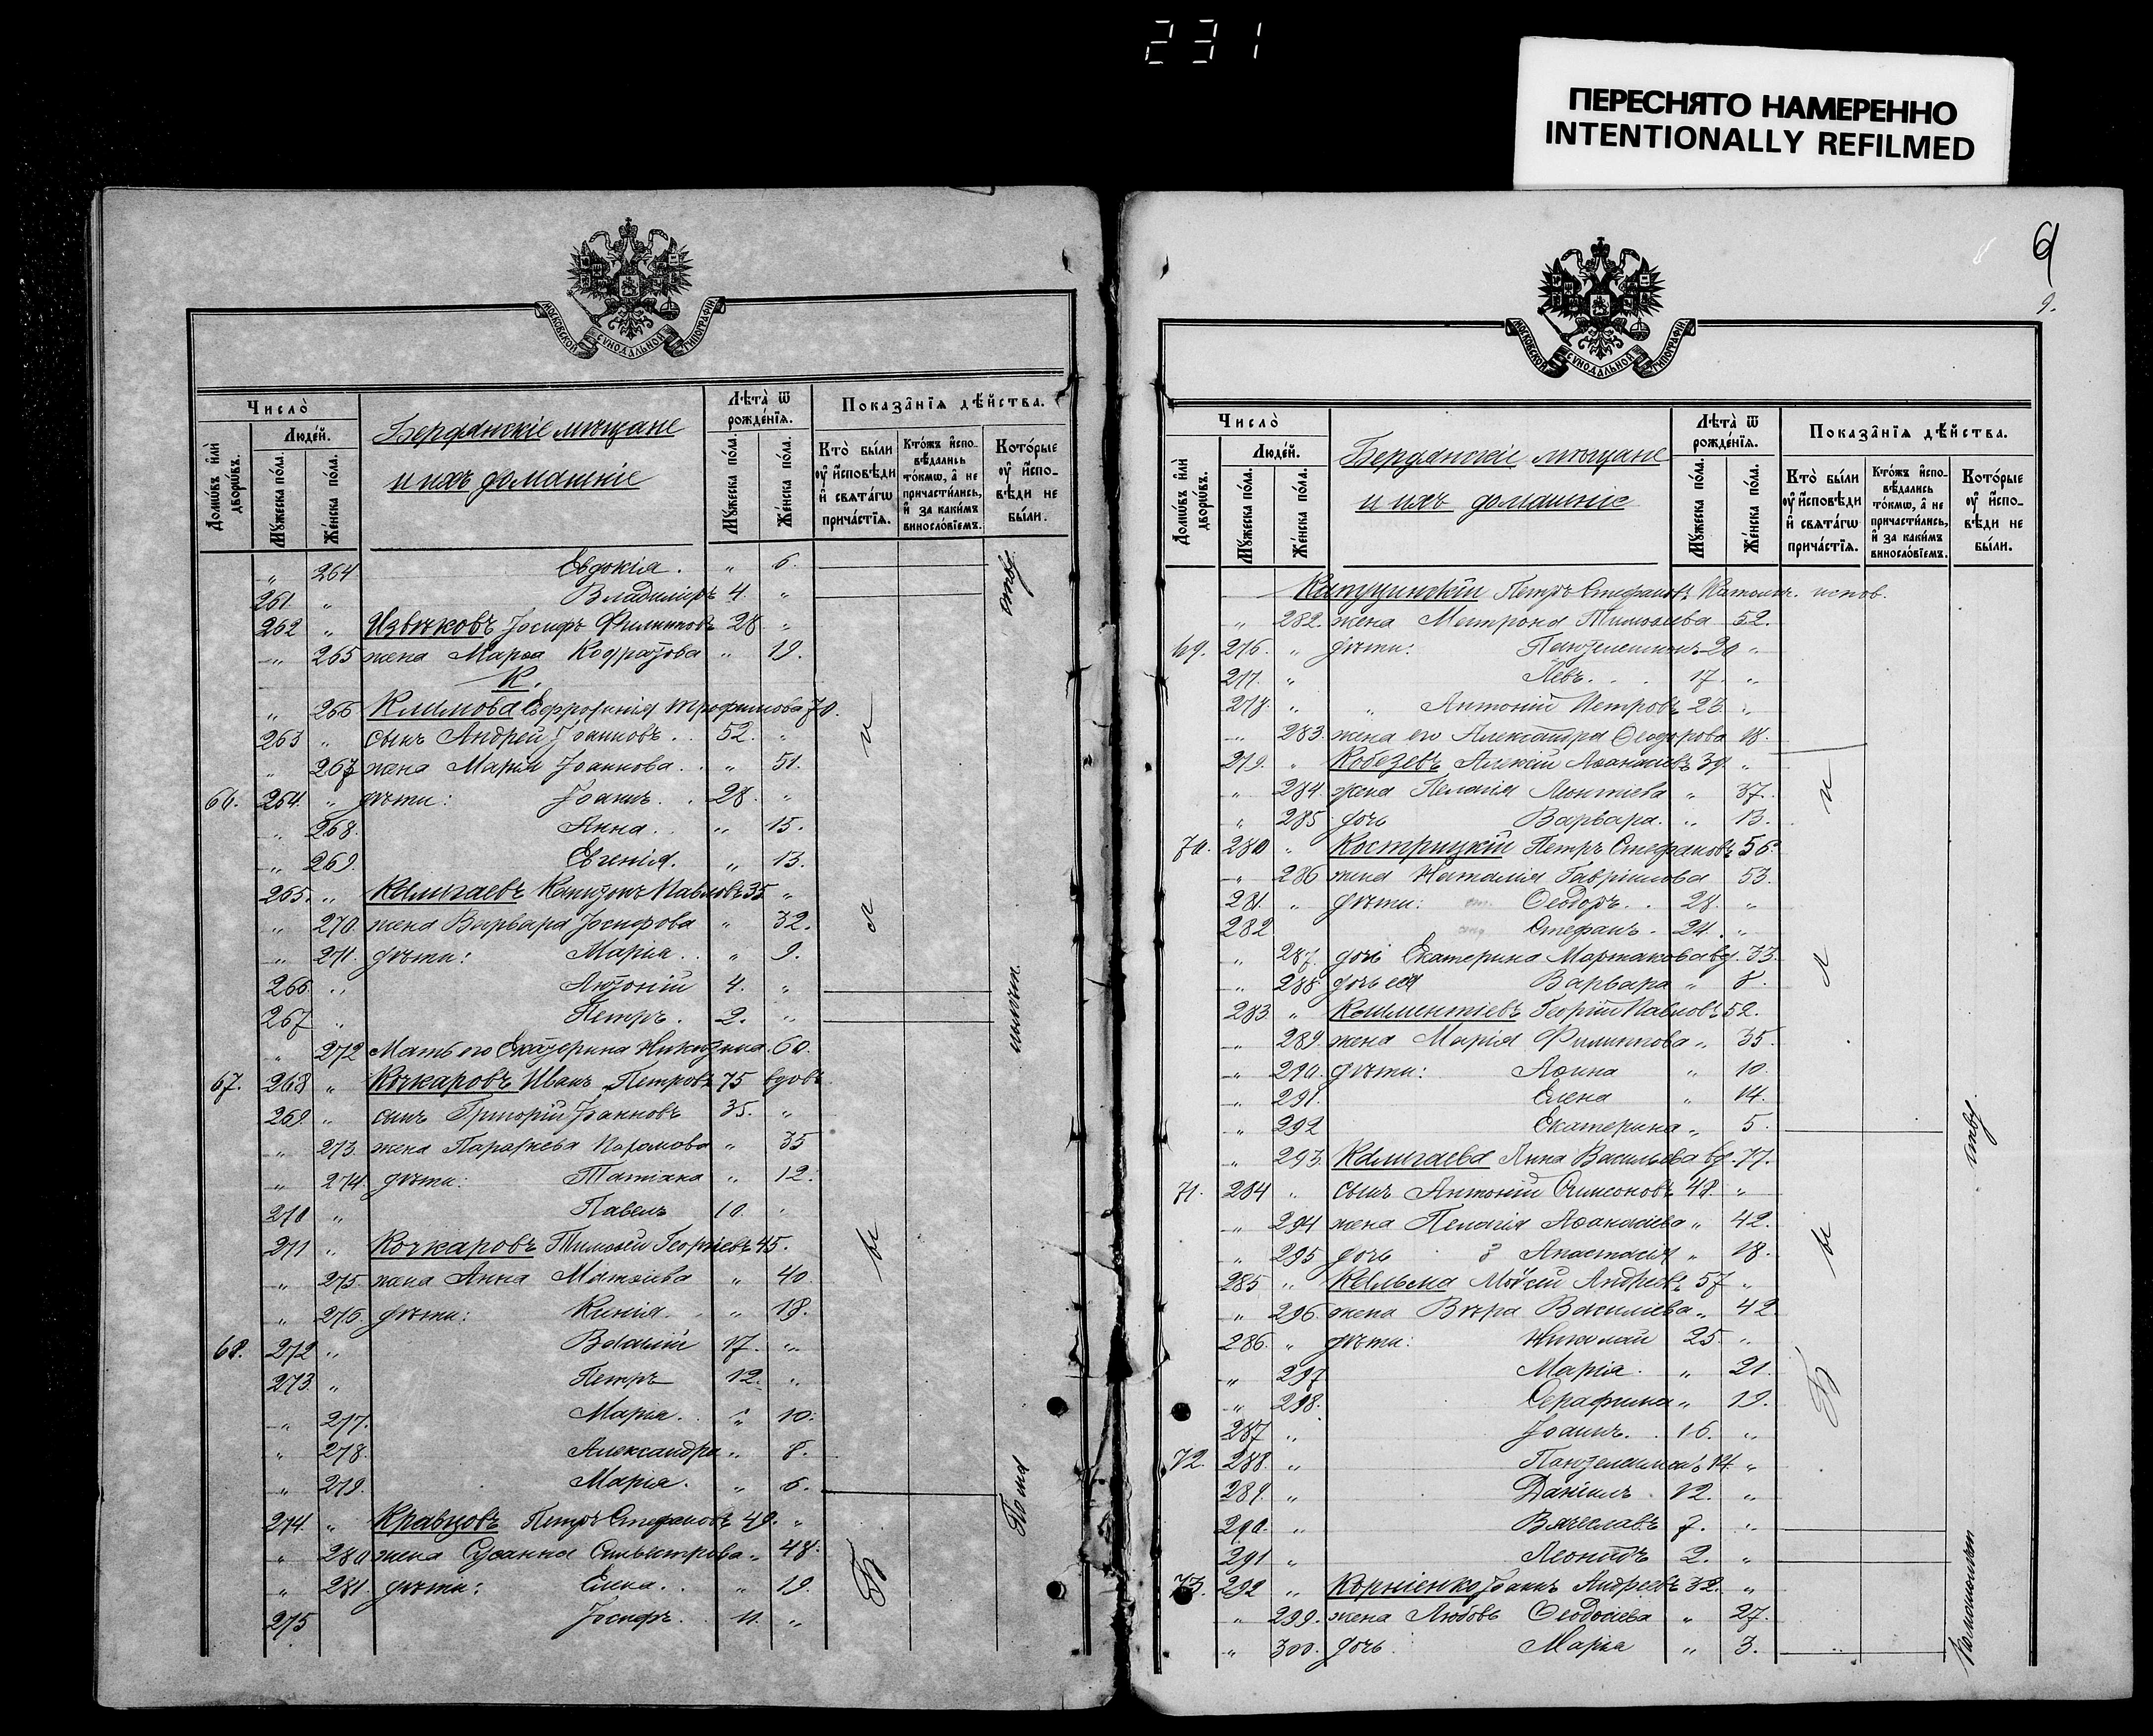 231
ПЕРЕСНЯТО НАМЕРЕННО
INTENTIONALLY REFILMED
МОСКОВСКОЙ СѴНОДАЛЬНОЙ ТИПОГРАФІИ
Число̀
Людей.
Домѡвъ и҆лѝ дворѡвъ.
Мꙋжеска пола.
Женска пола.
Бердянскіе мѣщане
и ихъ домашніе
Лѣта̀ ѿ рожденїѧ.
Мꙋжеска пола.
Женска пола.
Показанїѧ дѣйства.
Кто̀ были оу҆ и҆сповѣди и҆ свѧтагѡ причастїѧ.
Ктожъ и҆сповѣдались токмѡ, а҆ не причастились, и҆ за какимъ винословїемъ.
Которые оу҆ и҆сповѣди не были.
„ 264 Евдокія . „ 6.
261. „ Владиміръ 4. „
262 „ Извѣковъ Іосифъ Филиповъ 28 „
„ 265 жена Марѳа „ 19.
К.
„ 266 Климова Ефросинія Трофимова 70.
263 „ сынъ Андрей Іоанновъ . . 52. „
„ 267 жена Марія Іоаннова . . „ 51.
66. 264. „ дѣти: Іоаннъ . . 28. „
„ 268. Анна . . „ 15.
„ 269. Евгенія. „ 13.
265. „ Калмгаевъ Павловъ 35 „
„ 270. жена Варвара Іосифова „ 32.
„ 271. дѣти: Марія . . „ 9.
266. „ Антоній 4. „
267 „ Петръ . 2. „
„ 272 Мать его Екатерина Никитина . 60.
67. 268 „ Кочкаровъ Иванъ Петровъ 75 вдовъ
269. „ сынъ Григорій Іоанновъ 35. „
„ 273. жена Параскева „ 35
„ 274. дѣти: Татіана „ 12.
270 „ Павелъ 10. „
271 „ Кочкаровъ Тимоѳей Георгіевъ 45.
„ 275. жена Анна Матѳіева „ 40
„ 276. дѣти: „ 18.
68. 272 „ Василій 17. „
273. „ Петръ 12. „
„ 277. Марія . „ 10.
„ 278. Александра „ 8.
„ 279. Марія . „ 6.
274. „ Кравцовъ Петръ Стефановъ 49. „
„ 280 жена Сусанна Сильвестрова „ 48.
„ 281. дѣти: Елена . . „ 19.
275 Іосифъ . . 11. „
МОСКОВСКОЙ СѴНОДАЛЬНОЙ ТИПОГРАФІИ
9.
Число̀
Людей.
Домѡвъ и҆лѝ дворѡвъ.
Мꙋжеска пола.
Женска пола.
Бердянскіе мѣщане
и ихъ домашніе
Лѣта̀ ѿ рожденїѧ.
Мꙋжеска пола.
Женска пола.
Показанїѧ дѣйства.
Кто̀ были оу҆ и҆сповѣди и҆ свѧтагѡ причастїѧ.
Ктожъ и҆сповѣдались токмѡ, а҆ не причастились, и҆ за какимъ винословїемъ.
Которые оу҆ и҆сповѣди не были.
Капущинскій Петръ Стефановъ Католич. испов.
„ 282. жена Матрона Тимоѳеева 52.
69. 276. „ дѣти: Пантелеимонъ 20 „
277. „ Левъ . . . 17. „
278. „ „ Антоній Петровъ 23. „
„ 283. жена его Александра Ѳеодорова 18.
279. „ Кобезевъ Алексій Аѳанасіевъ 39. „
„ 284. жена Пелагія Леонтіева „ 37.
„ 285 дочь Варвара . „ 13.
70. 280 „ Кострицкій Петръ Стефановъ 56
„ 286 жена Наталія Гавріилова 53.
281. „ дѣти: Ѳеодоръ . . 28. „
282 Стефанъ . 24. „
„ 287. дочь Екатерина Мартакова вд. 33.
„ 288 дочь ея Варвара „ 8.
283. „ Климентіевъ Георгій Павловъ 52.
„ 289. жена Марія Филиппова „ 35.
„ 290. дѣти: „ 10.
„ 291. Елена „ 14.
„ 292 Екатерина „ 5.
„ 293. Калмгаева Анна Васильева вд. 77.
71. 284 „ сынъ Антоній Симеоновъ 48. „
„ 294 жена Пелагія Аѳанасіева „ 42.
„ 295 дочь Анастасія „ 18.
285 „ Кальма Моѵсей Андреевъ 57 „
„ 296. жена Вѣра Василіева „ 42
286. „ дѣти: Николай 25. „
„ 297 Марія . „ 21.
„ 298. Серафима „ 19.
287 „ Іоаннъ . . 16. „
72. 288. „ Пантелеимонъ 14. „
289. „ Даніилъ . 12. „
290. „ Вячеславъ 7. „
291 „ Леонидъ 2. „
73. 292 „ Корніенко Іоаннъ Андреевъ 32. „
„ 299. жена Любовь Ѳеодосіева „ 27.
„ 300. дочь Марія „ 3.